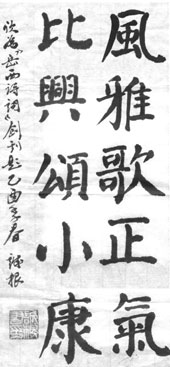 風雅歌正氣
比興頌小康
欣為《岳西詩詞》創刊題乙酉年春 誠根